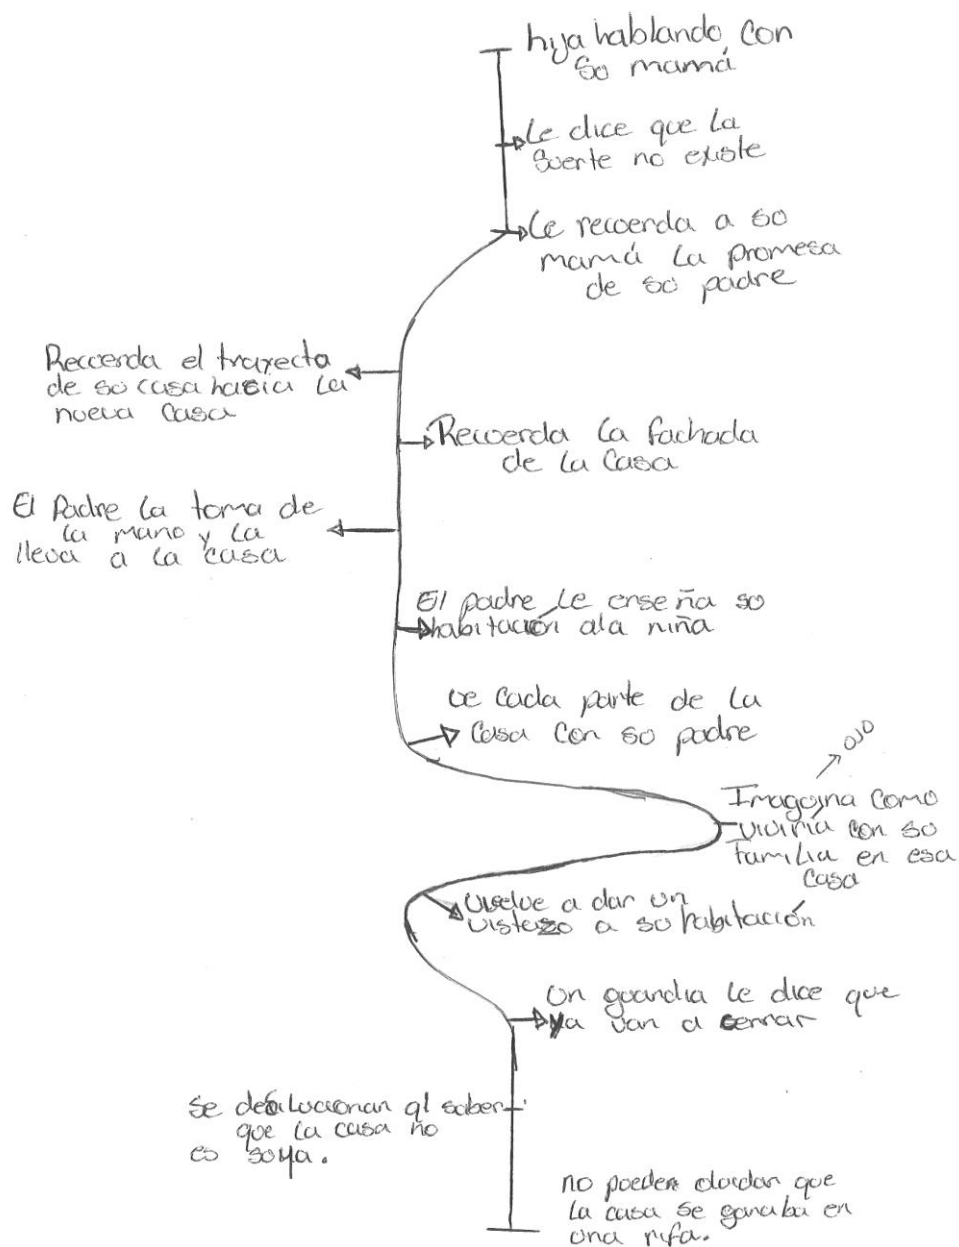 hija hablando con
so mamá
Le dice que la
suerte no existe
Le recuerda a so
mamá la promesa
de so padre
Recuerda el trayecto
de so casa hasia la
nueva casa
Recuerda la fachada
de la casa
El Padre la toma de
la mano y la
lleva a la casa
El padre le enseña so
habitación ala niña
ve cada parte de la
casa con so padre
ojo
Imagoina como
viviría con so
familia en esa
casa
vuelve a dar un
vistazo a su habitación
un guardia le dice que
ya van a cerrar
se desilucionan al saber
que la casa no
es soya.
no pueden olvidar que
la casa se ganaba en
una rifa.